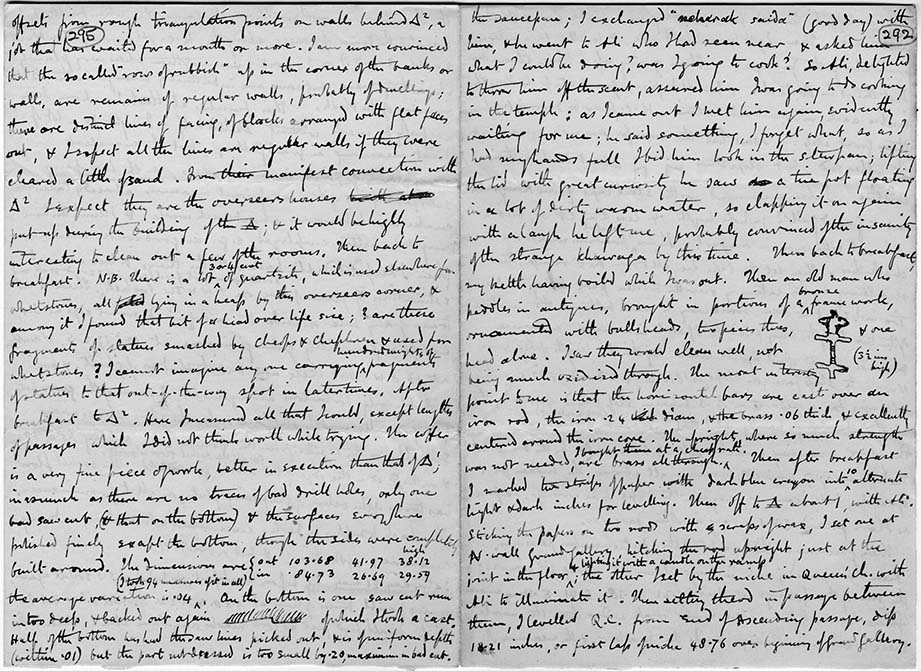 295
offsets from rough triangulation points on walls behind Δ², a
job that has waited for a month or more. I am more convinced
that the so called "rows of rubbish" up in the corner of the banks or
walls, are remains of regular walls, probably of dwellings;
there are distinct lines of facing, of blocks arranged with flat faces
out, & I expect all the lines are regular walls if they were
cleared a little of sand. From their manifest connection with
Δ² I expect they are the overseers houses
put up during the building of the Δ; & it would be highly
interesting to clean out a few of the rooms. Then back to
breakfast. N.B. There is a lot, 3 or 4 cwt of quartzite, which is used elsewhere for
whetstones, all lying in a heap by this overseers corner, &
among it I found that bit of a head over life size; ? are these
fragments of statues smashed by Cheops & Chephren & used for
whetstones? I cannot imagine any one carrying hundredweights of fragments
of statues to that out-of-the-way spot in later times. After
breakfast to Δ². Here I measured all that I could, except lengths
of passages which I did not think worth while trying. The coffer
is a very fine piece of work, better in execution than that of Δ¹,
inasmuch as there are no traces of bad drill holes, only one
bad saw cut, (& that on the bottom) & the surfaces everywhere
polished finely except the bottom, though the sides were completely
built around. The dimensions are { out 103.68 41.97 high 38.12
(I took 94 measures of it in all) { in 84.73 26.69 29.59
the average variation is .04. On the bottom is one saw cut run
in too deep, & backed out again of which I took a cast,
Half of the bottom has had the saw lines picked out & is of uniform depth
(within .01) but the part not dressed is too small by .20, maximum in bad cut.
292
the saucepan; I exchanged "neharak saida" (good day) with
him, & he went to Ali who I had seen near & asked him
what I could be doing? was I going to cook? So Ali, delighted
to throw him off the scent, assured him I was going to do cooking
in the temple; as I came out I met him again, evidently
waiting for me; he said something, I forget what, so as I
had my hands full I bid him look in the stewpan; lifting
the lid with great curiosity he saw a tin pot floating
in a lot of dirty warm water, so clapping it on again
with a laugh he left me, probably convinced of the insanity
of the strange khawaga by this time. Then back to breakfast,
my kettle having boild while I was out. Then an old man who
peddles in antiques, brought in portions of a bronze framework,
ornamented with bulls heads, two pieces thus, & one
head alone. I saw they would clean well, not (3½ ins high)
being much oxidized through. The most interesting
point to me is that the horizontal bars are cast over an
iron rod, the iron .24 diam, & the brass .06 thick, & excellently
centered around the iron core. The upright, where so much strength
was not needed, are brass all through. I bought them at a cheap rate. Then after breakfast
I marked two strips of paper with dark blue crayon into 10 alternate
light & dark inches for levelling. Then off to Δ about 1, with Ali.
Sticking the papers on two rods with scraps of wax, I set one at
N. wall ground gallery, hitching the rod upright just at the
joint in the floor, & lighting it with a candle on the ramp, the other I set by the niche in Queen's Ch. with
Ali to illuminate it. Then setting theod in passage between
them, I levelled Q.C. from end of Ascending passage, dips
18.21 inches, or first lap of niche 48.76 over beginning of grand gallery.